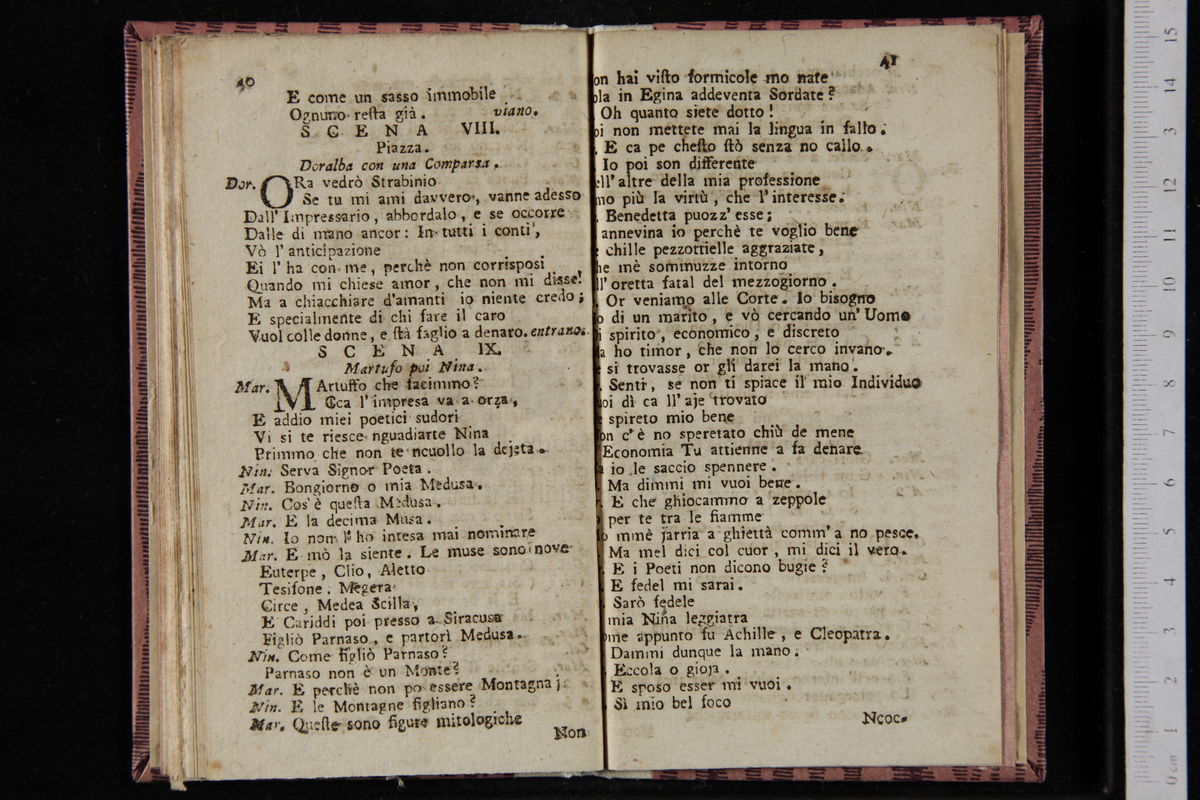 40
E come un sasso immobile
Ognuno resta già. viano.
SCENA VIII.
Piazza.
Doralba con una Comparsa.
Dor. ORa vedrò Strabinio
Se tu mi ami davvero, vanne adesso
Dall' Impressario, abbordalo, e se occorre
Dalle di mano ancor: In tutti i conti,
Vò l' anticipazione
Ei l' ha con me, perchè non corrisposi
Quando mi chiese amor, che non mi disse!
Ma a chiacchiare d'amanti io niente credo;
E specialmente di chi fare il caro
Vuol colle donne, e stà faglio a denaro. entrano.
SCENA IX.
Martufo poi Nina.
Mar. MArtuffo che facimmo?
Cca l' impresa va a orza,
E addio miei poetici sudori
Vi si te riesce nguadiarte Nina
Primmo che non te ncuollo la dejeta.
Nin. Serva Signor Poeta.
Mar. Bongiorno o mia Medusa.
Nin. Cos' è questa Medusa.
Mar. E la decima Musa.
Nin. Io non l' ho intesa mai nominare
Mar. E mò la siente. Le muse sono nove
Euterpe, Clio, Aletto
Tesifone, Megera
Circe, Medea Scilla,
E Cariddi poi presso a Siracusa
Figliò Parnaso, e partorì Medusa.
Nin. Come figliò Parnaso?
Parnaso non è un Monte?
Mar. E perchè non po essere Montagna;
Nin. E le Montagne figliano?
Mar. Queste sono figure mitologiche
Non
41
on hai visto formicole mo nate
ola in Egina addeventa Sordate?
Oh quanto siete dotto!
oi non mettete mai la lingua in fallo.
. E ca pe chesto stò senza no callo.
Io poi son differente
ell' altre della mia professione
mo più la virtù, che l' interesse.
. Benedetta puozz' esse;
annevina io perchè te voglio bene
chille pezzottielle aggraziate,
he mè sommuzze intorno
ll' oretta fatal del mezzogiorno.
. Or veniamo alle Corte. Io bisogno
o di un marito, e vò cercando un' Uomo
i spirito, economico, e discreto
a ho timor, che non lo cerco invano.
si trovasse or gli darei la mano.
. Senti, se non ti spiace il mio Individuo
oi dì ca ll' aje trovato
spireto mio bene
on c' è no speretato chiù de mene
Economia Tu attienne a fa denare
a io le saccio spennere.
Ma dimmi mi vuoi bene.
. E che ghiocammo a zeppole
per te tra le fiamme
o mmè jarria a ghiettà comm' a no pesce.
Ma mel dici col cuor, mi dici il vero.
. E i Poeti non dicono bugie?
E fedel mi sarai.
Sarò fedele
mia Nina leggiatra
ome appunto fu Achille, e Cleopatra.
Dammi dunque la mano.
. Eccola o gioja.
E sposo esser mi vuoi.
. Sì mio bel foco
Ncoc.
0 cm 1 2 3 4 5 6 7 8 9 10 11 12 13 14 15